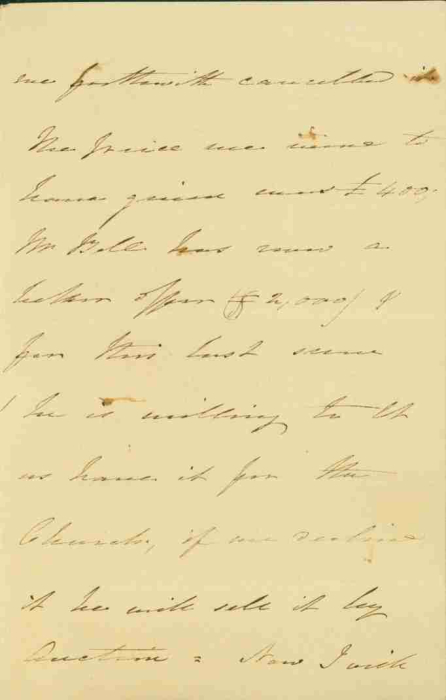 we forthwith cancelled it
The price we were to
have given was £400.
Mr Bell has now a
better offer (£2,000) &
for this last sum
he is willing to let
us have it for the
Church, if we decline
it he will sell it by
Auction = Now I wish